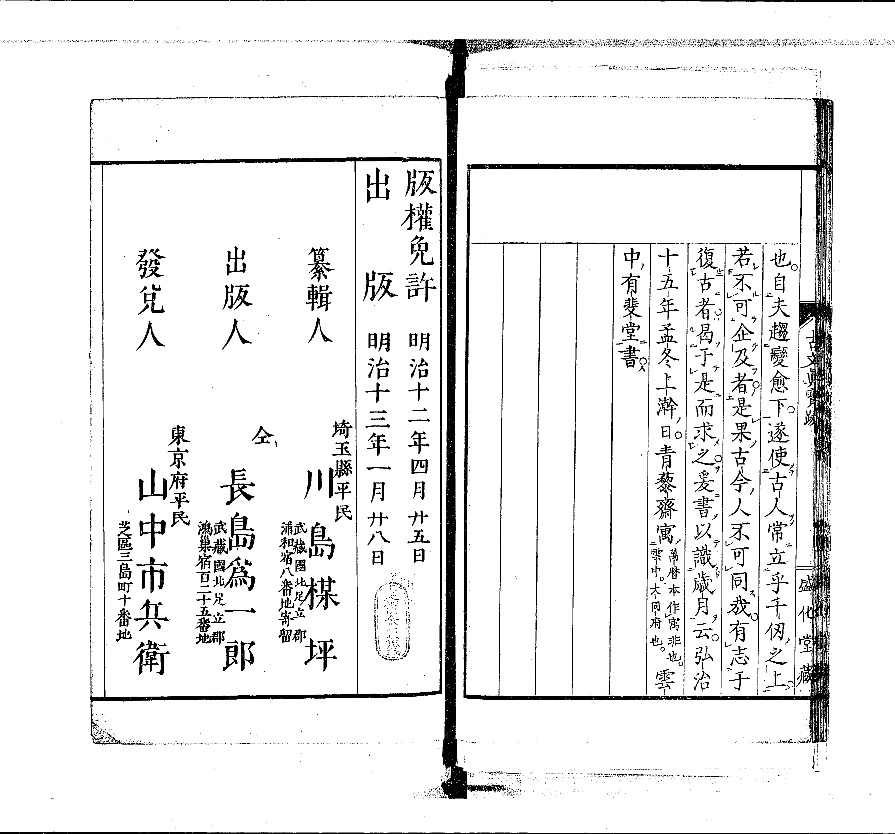 也自夫趨變愈下遂使古人常立乎千仞之上
若不可企及者是果古今人不可同哉有志于
復古者曷于是而求之爰書以識歲月云弘治
十五年孟冬上澣日青藜齋寓萬曆本作寓非也雲中大同府也雲
中有斐堂書
古文真寶跋
盛化堂藏
版權免許 明治十二年四月廿五日
出版 明治十三年一月廿八日
纂輯人 埼玉縣平民 川島楳坪 武藏國北足立郡浦和宿八番地寄留
出版人 仝 長島爲一郎 武藏國北足立郡鴻巢宿百二十五番地
發兌人 東京府平民 山中市兵衛 芝區三島町十番地